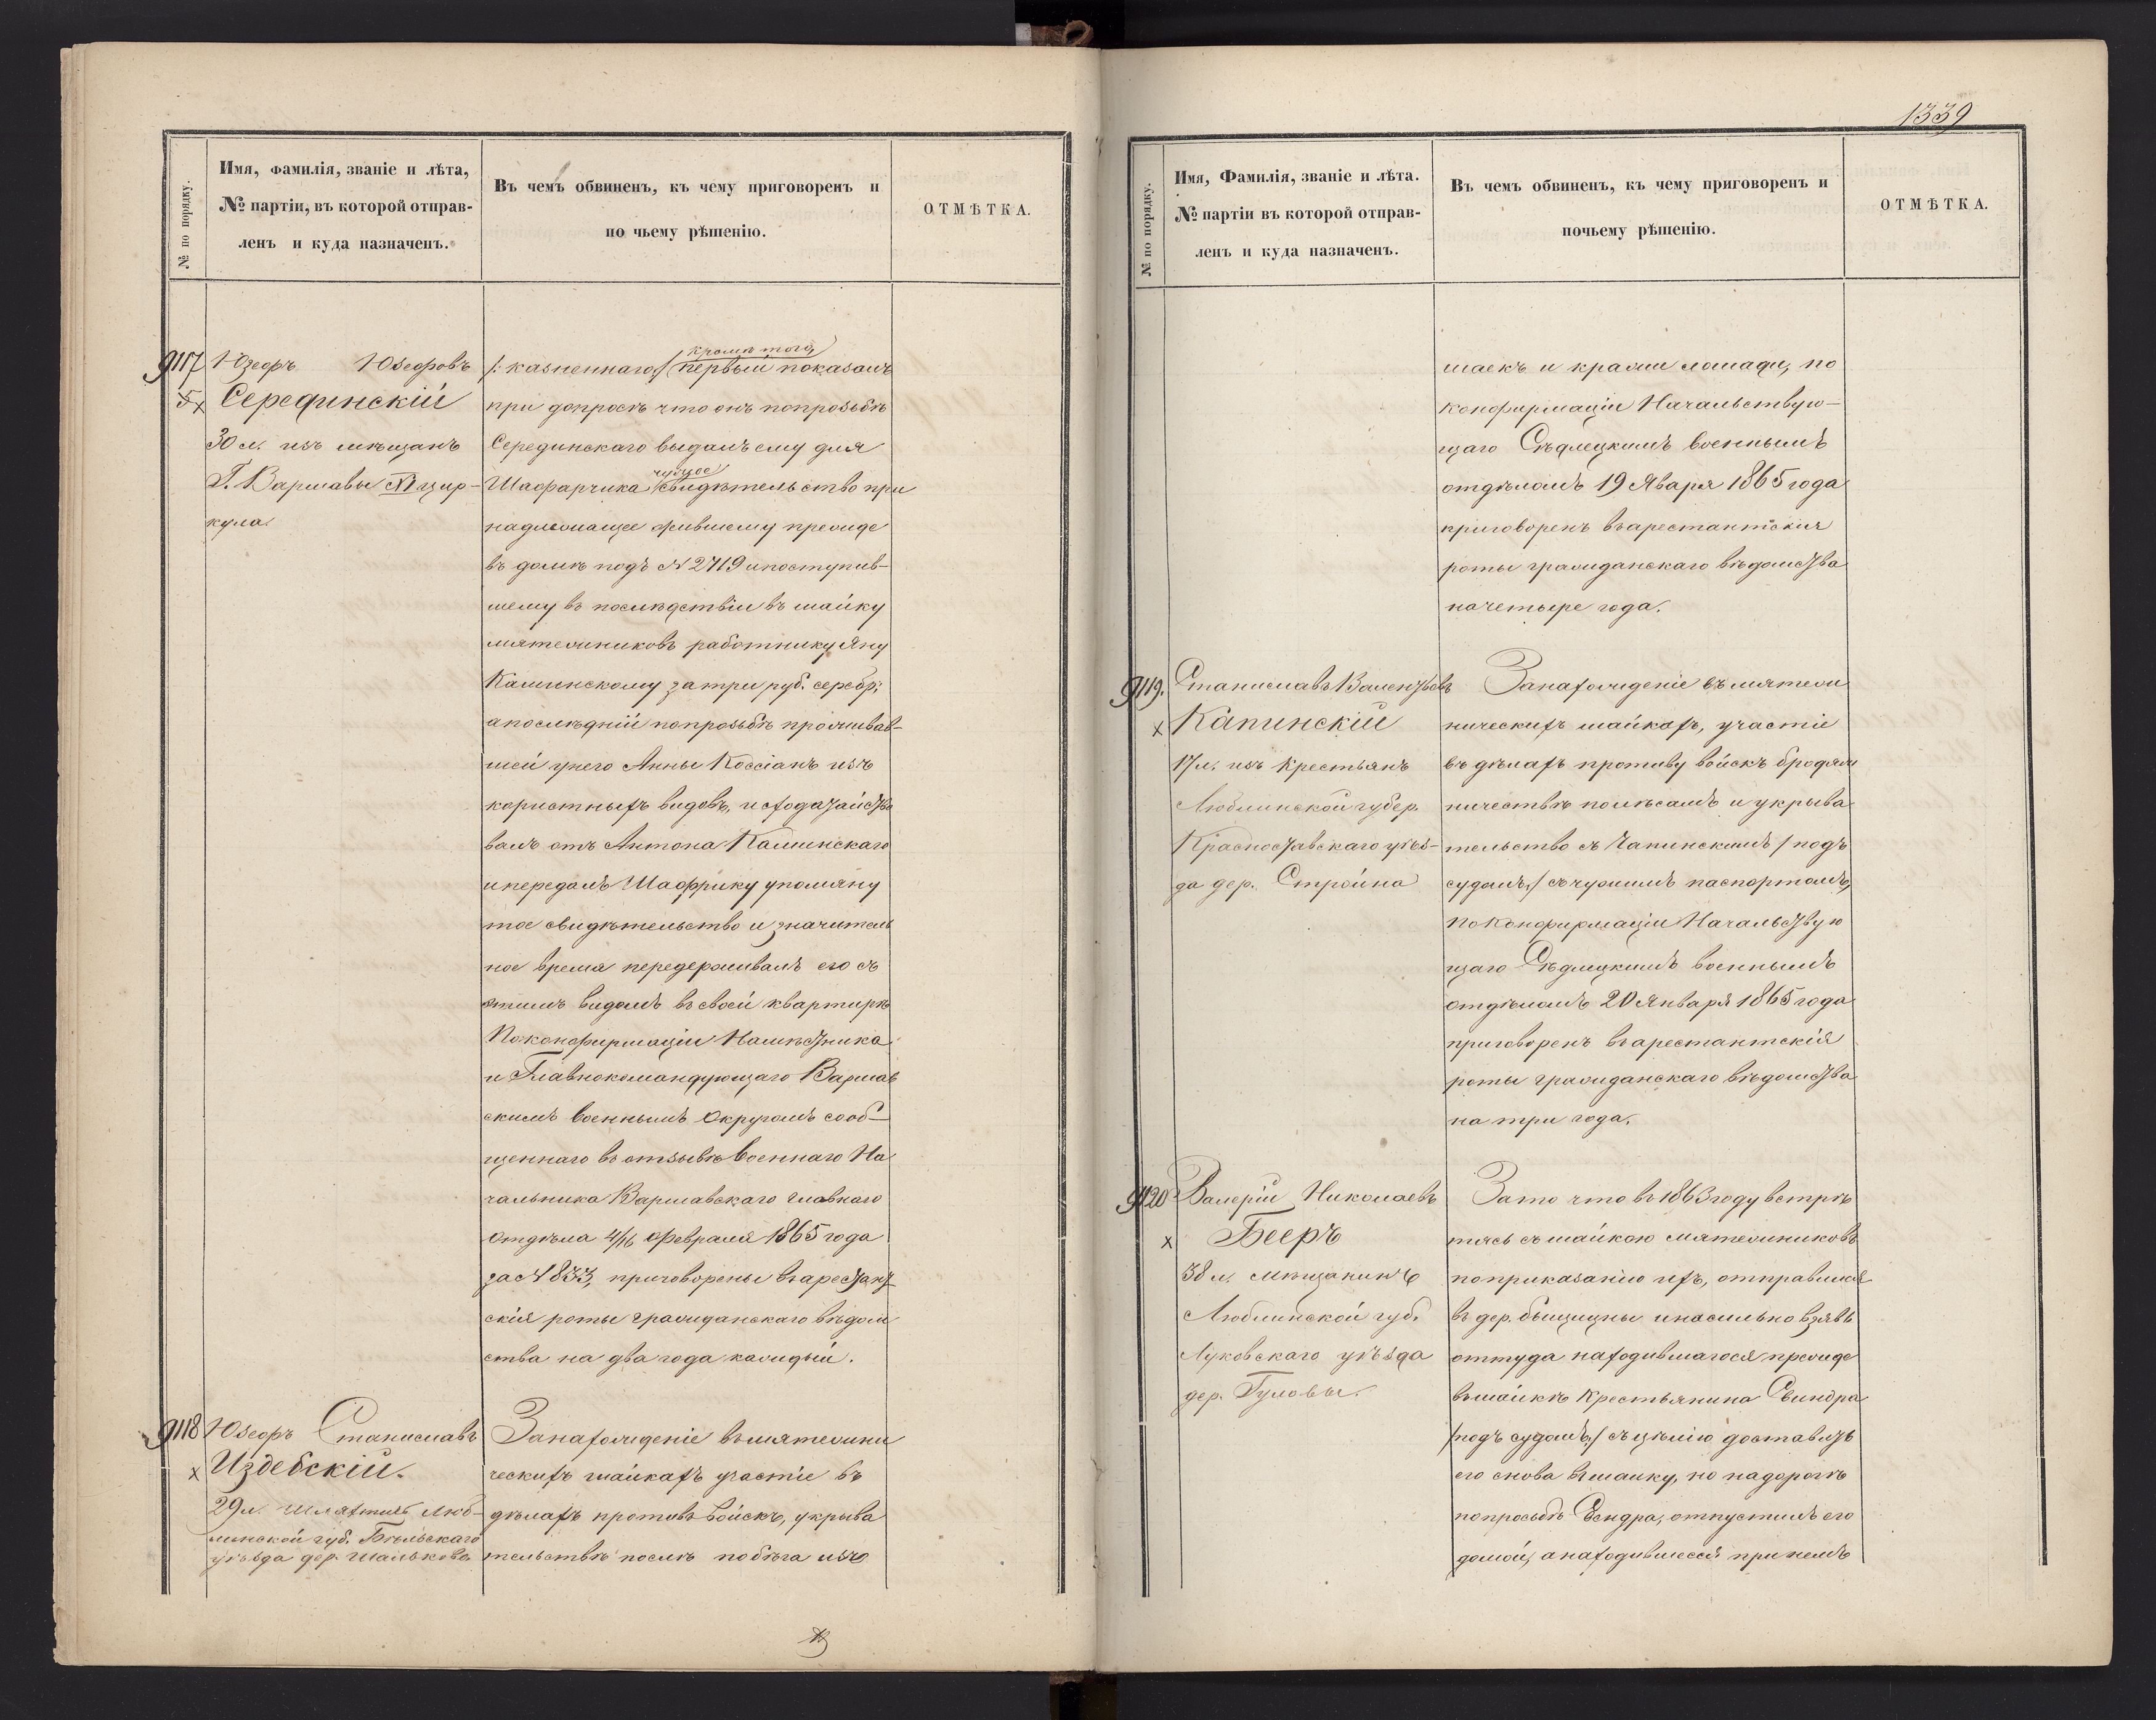 1339
№ по порядку.
Имя, фамилія, званіе и лѣта,
№ партіи, въ которой отправ-
ленъ и куда назначенъ.
Въ чемъ обвиненъ, къ чему приговоренъ и
по чьему рѣшенію.
ОТМѢТКА.
9117
Юзефъ Юзефовъ
Серединскій
30 л. изъ мѣщанъ
Г. Варшавы XI цир-
кула.
кромѣ того,
/: казненнаго/ первый показалъ
при допросѣ что онъ попрозьбѣ
Серединскаго выдалъ ему для
чужое
Шафарчика свидѣтельство при
надлежащее жившему прежде
въ домѣ подъ № 2719 и поступив-
шему въ послѣдствіи въ шайку
мятежниковъ работнику Яну
Калинскому за три руб. серебр:
а послѣдній попрозьбѣ прожывав-
шей унего Анны Коссіанъ изъ
користныхъ видовъ, исходатайство
валъ отъ Антона Калинскаго
и передалъ Шаффрику упомяну
тое свидѣтельство и значитель
ное время передерживалъ его съ
этимъ видомъ въ своей квартирѣ
По конфирмаціи Намѣстника
и Главнокомандующаго Варшав
скимъ военнымъ Округомъ сооб-
щеннаго въ отзывѣ Военнаго На
чальника Варшавскаго главнаго
Отдѣла 4/16 февраля 1865 года
за № 833, приговорены въ арестант-
скія роты гражданскаго вѣдом
ства на два года каждый.
9118
Юзефъ Станиславъ
Издебскій.
29 л. шляхтичъ Люб-
линской губ. Бѣльскаго
уѣзда дер. Шаньково
Занахожденіе въ мятежни
ческихъ шайкахъ участіе въ
дѣлахъ противъ войскъ, укрыва
тельствѣ послѣ побѣга изъ
№ по порядку.
Имя, Фамилія, званіе и лѣта.
№ партіи въ которой отправ-
ленъ и куда назначенъ.
Въ чемъ обвиненъ, къ чему приговоренъ и
почьему рѣшенію.
ОТМѢТКА.
шаекъ и кражи лошади, по
конфирмаціи Начальствую-
щаго Сѣдлецкимъ военнымъ
отдѣломъ 19 Января 1865 года
приговоренъ въ арестантскія
роты гражданскаго вѣдомства
на четыре года.
9119.
Станиславъ Валентьевъ
Капинскій
17 л. изъ Крестьянъ
Люблинской губер.
Красноставскаго уѣз-
да дер. Стройна
Занахожденіе въ мятеж
ническихъ шайкахъ, участіе
въ дѣлахъ противу войскъ бродяж
ничествѣ по лѣсамъ и укрыва
тельство съ Чапинскимъ /подъ
судомъ/ съ чужимъ паспортомъ,
по Конфирмаціи Начальствую
щаго Сѣдлецкимъ военнымъ
отдѣломъ 20 Января 1865 года
приговоренъ въ арестантскія
роты гражданскаго вѣдомства
на три года.
9120
Валерій Николаевъ
Бееръ
38 л. мѣщанинъ
Люблинской губ.
Луковскаго уѣзда
дер. Гуловы.
Зато что въ 1863 году встрѣ
тясь съ шайкою мятежниковъ
по приказанію ихъ, отправился
въ дер. быщицны и насильно взявъ
оттуда находившагося прежде
въ шайкѣ Крестьянина Сындра
/подъ судомъ/ съ цѣлію доставить
его снова въ шайку, но на дорогѣ
по просьбѣ Сендра, отпустилъ его
домой, а находившееся при немъ